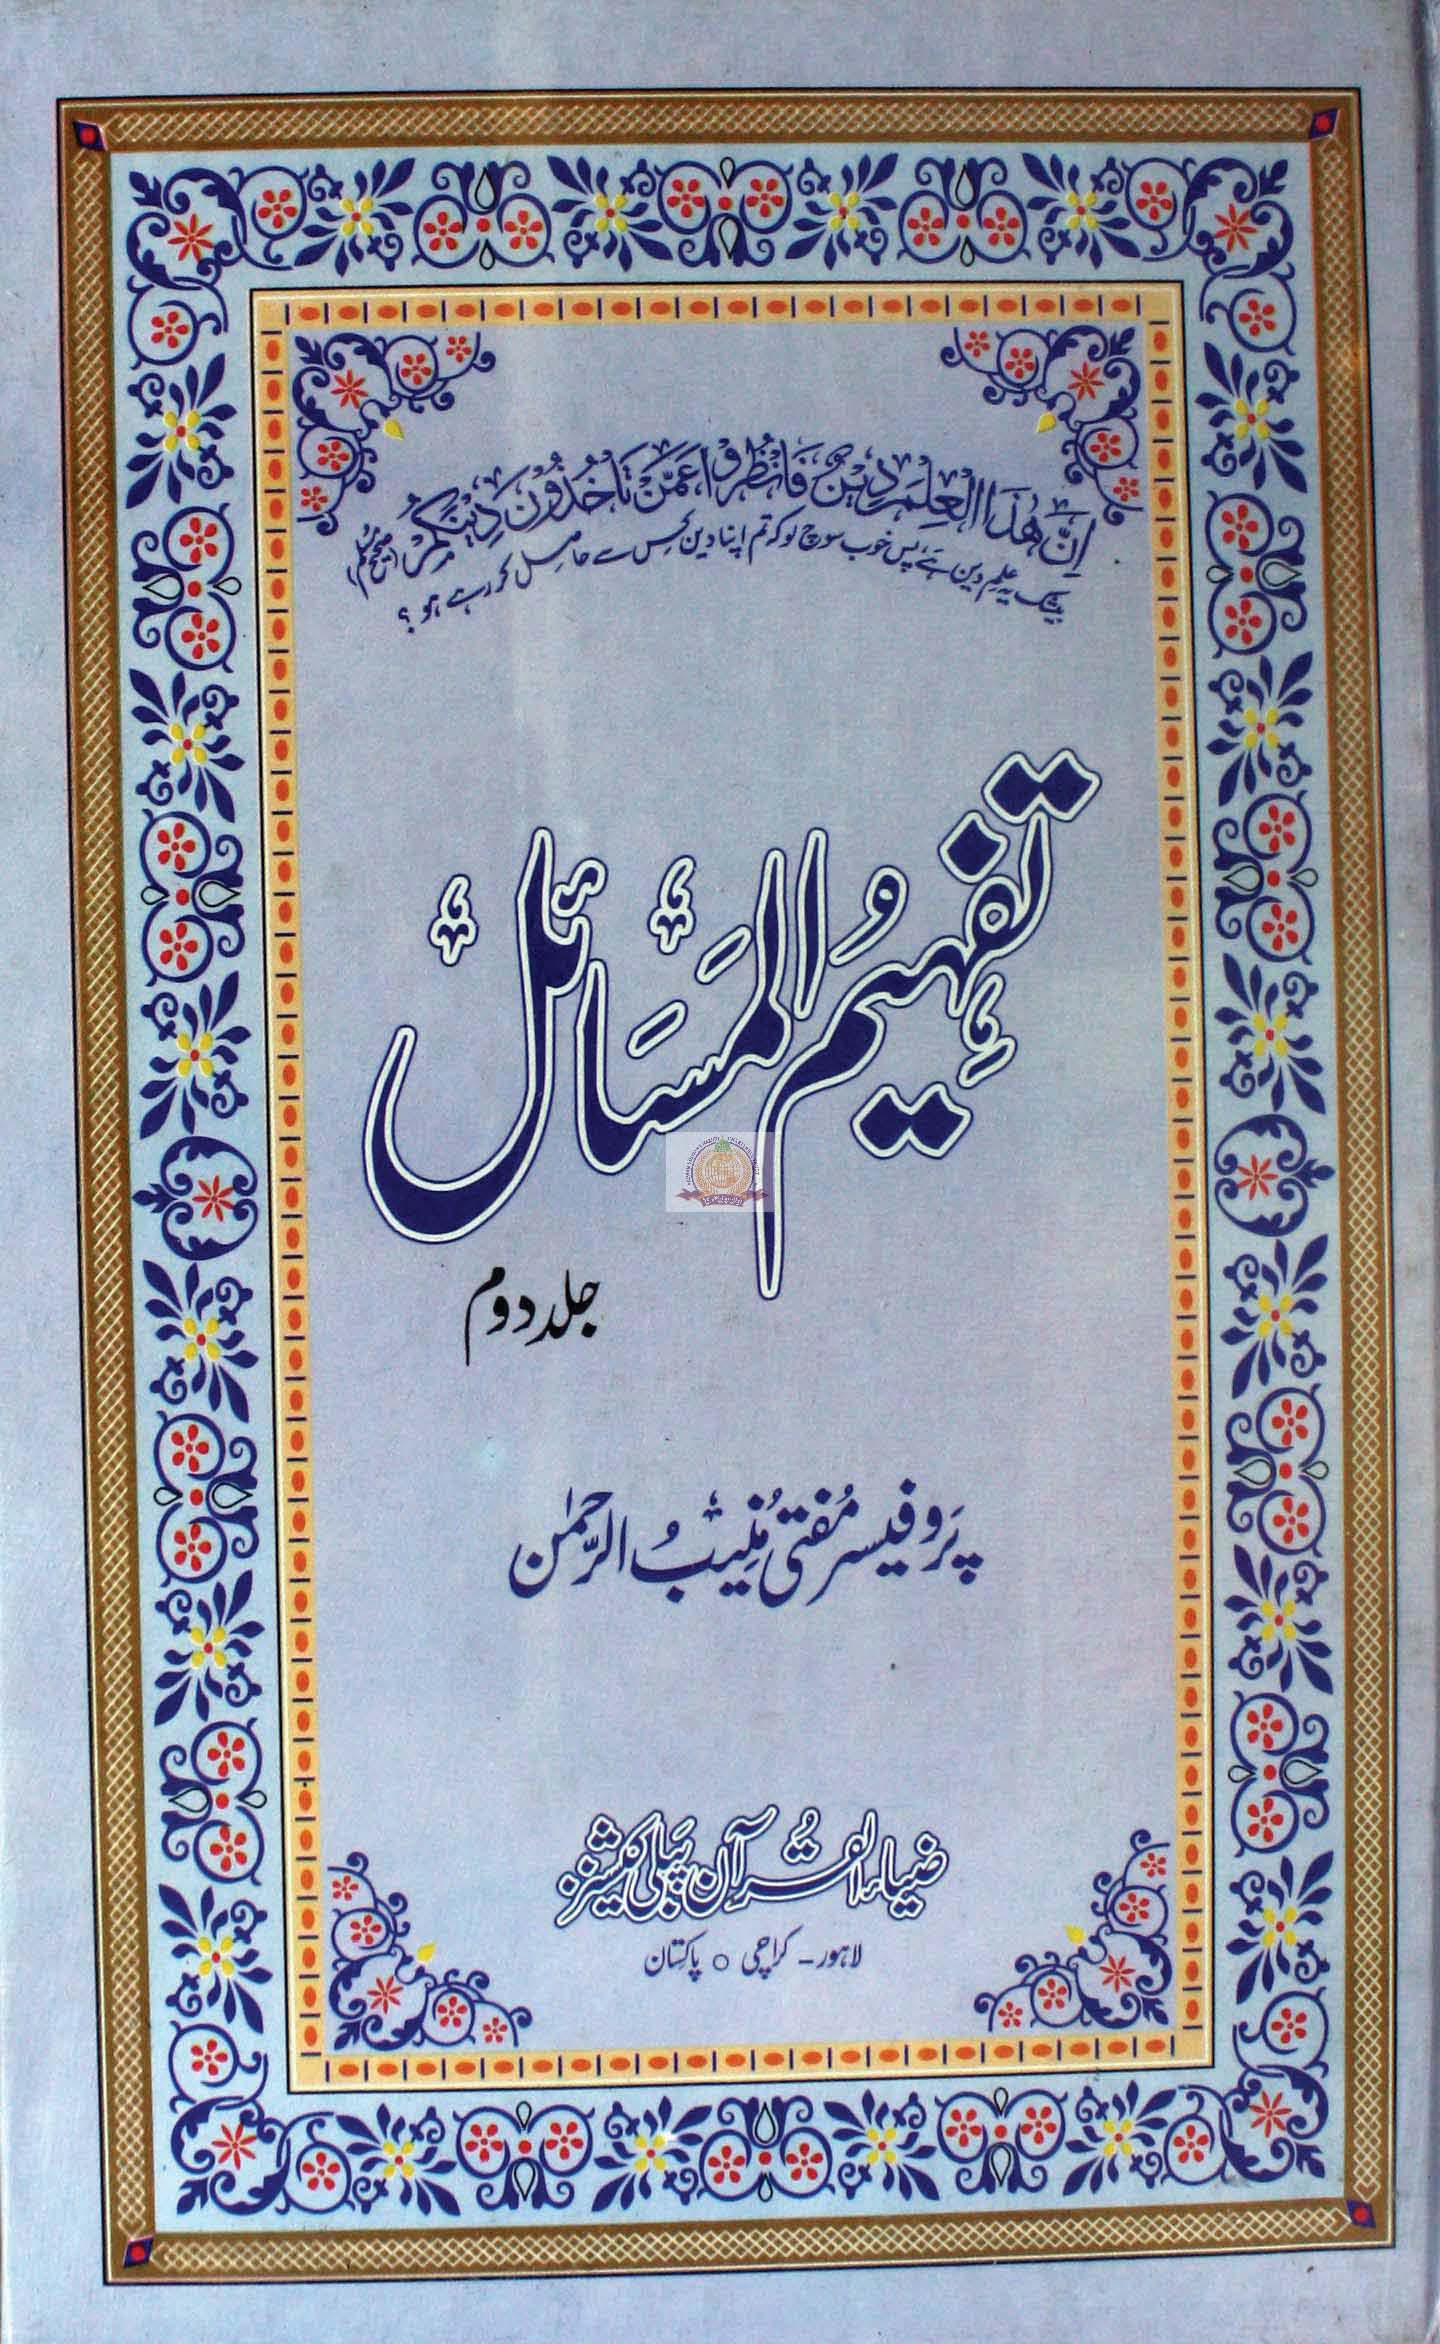 إِنَّ هٰذَا الْعِلْمَ دِينٌ فَانْظُرُوا عَمَّنْ تَأْخُذُونَ دِينَكُمْ (صحیح مسلم)
بیشک یہ علم دین ہے، پس خوب سوچ لو کہ تم اپنا دین کس سے حاصل کر رہے ہو؟
تفہیمُ المَسَائل
جلد دوم
پروفیسر مُفتی مُنیبُ الرَّحمٰن
ضیاء القُرآن پَبلی کیشنز
لاہور - کراچی ○ پاکستان